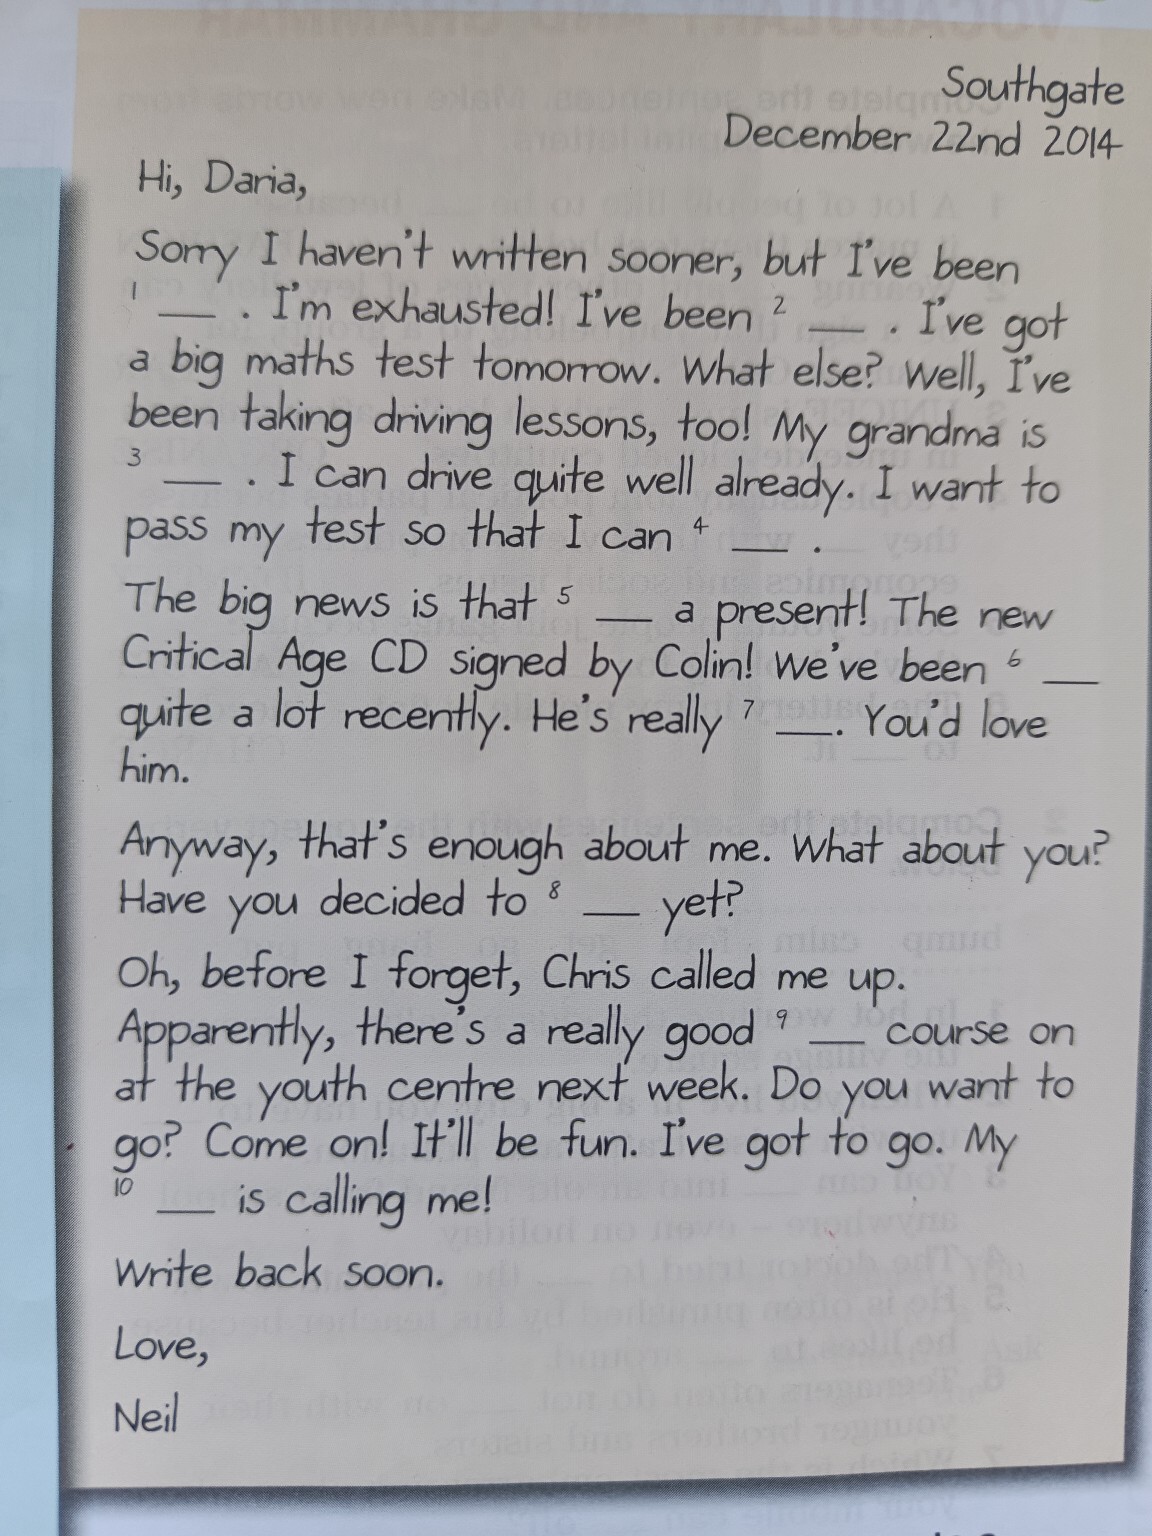 Southgate
December 22nd 2014
Hi, Daria,
Sorry I haven't written sooner, but I've been
1 ___ . I'm exhausted! I've been 2 ___ . I've got
a big maths test tomorrow. What else? Well, I've
been taking driving lessons, too! My grandma is
3 ___ . I can drive quite well already. I want to
pass my test so that I can 4 ___ .
The big news is that 5 ___ a present! The new
Critical Age CD signed by Colin! We've been 6 ___
quite a lot recently. He's really 7 ___. You'd love
him.
Anyway, that's enough about me. What about you?
Have you decided to 8 ___ yet?
Oh, before I forget, Chris called me up.
Apparently, there's a really good 9 ___ course on
at the youth centre next week. Do you want to
go? Come on! It'll be fun. I've got to go. My
10 ___ is calling me!
Write back soon.
Love,
Neil